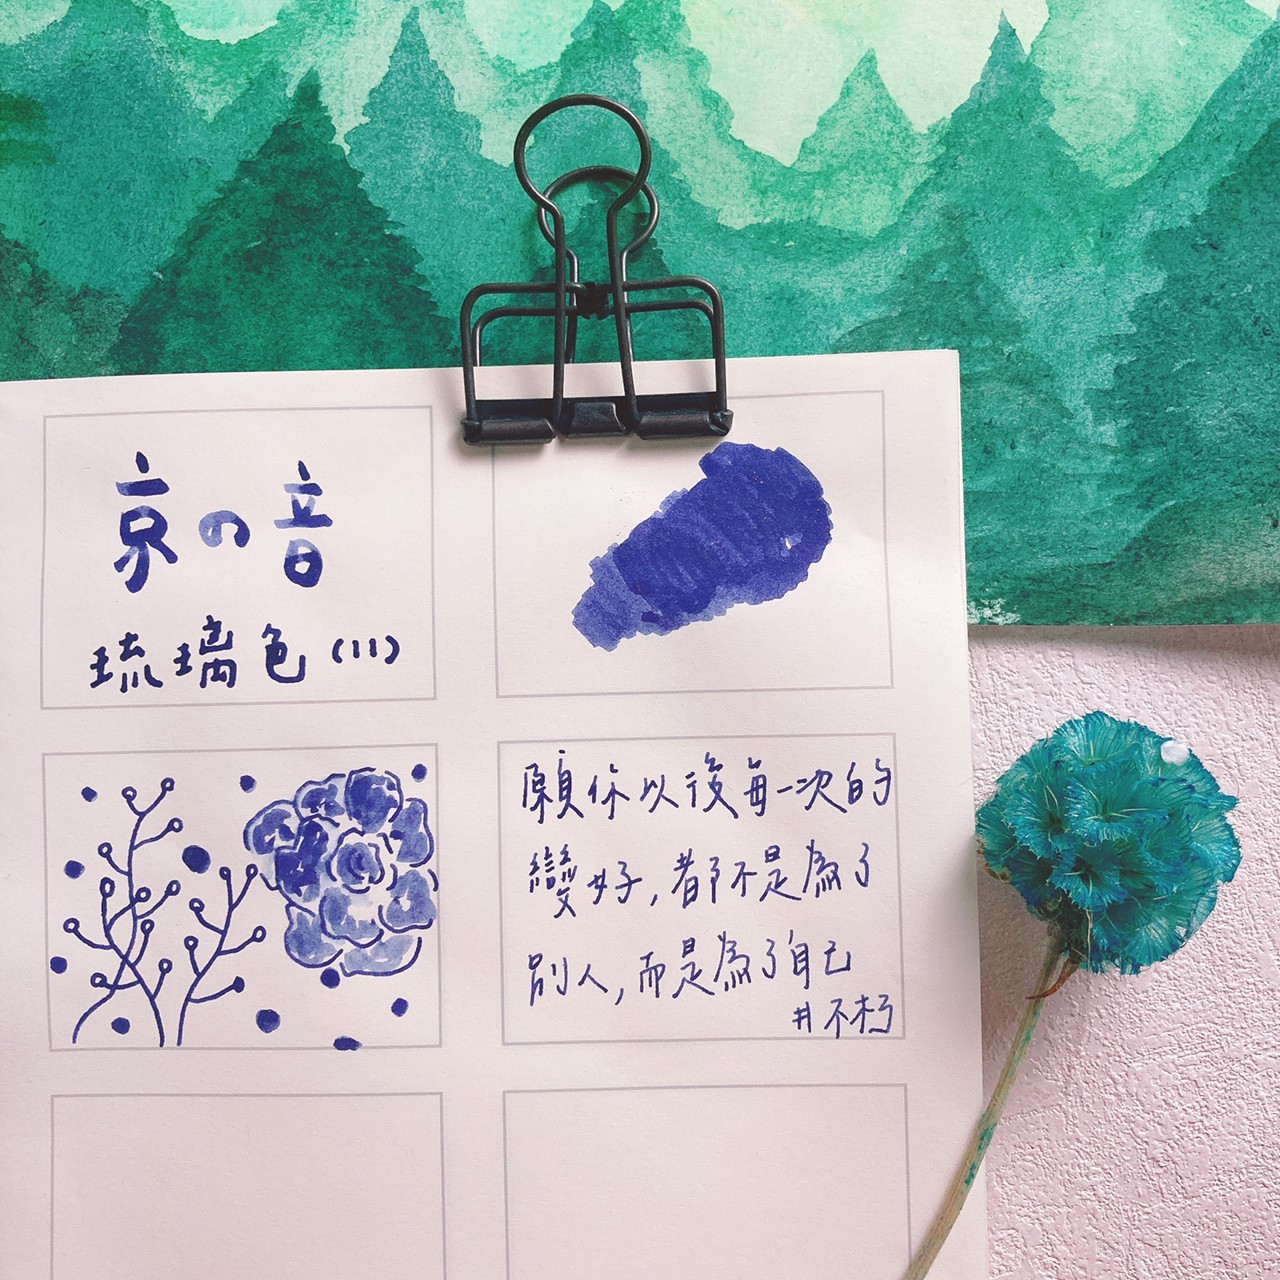 京の音
琉璃色(11)
願你以後每一次的
變好,都不是為了
別人,而是為了自己
#不朽